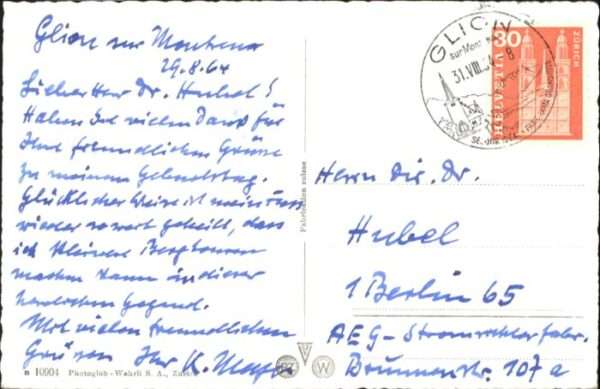 Glion sur Montreux
29.8.64
Lieber Herr Dr. Hubel!
Haben Sie vielen Dank für
Ihre freundlichen Grüsse
zu meinem Geburtstag.
Glücklicher Weise ist mein Fuss
wieder so weit geheilt, dass
ich kleinere Bergtouren
machen kann in dieser
herrlichen Gegend.
Mit vielen freundlichen
Grüssen Ihr K.
10004 Photoglob-Wehrli S. A., Zürich
Fabrication suisse
GLION
sur Montreux
31.VIII.64 - 8
HELVETIA 30
ZÜRICH
Herrn Dir. Dr.
Hubel
1 Berlin 65
AEG-Stromrichterfabr.
Brunnenstr. 107a
PZ
W